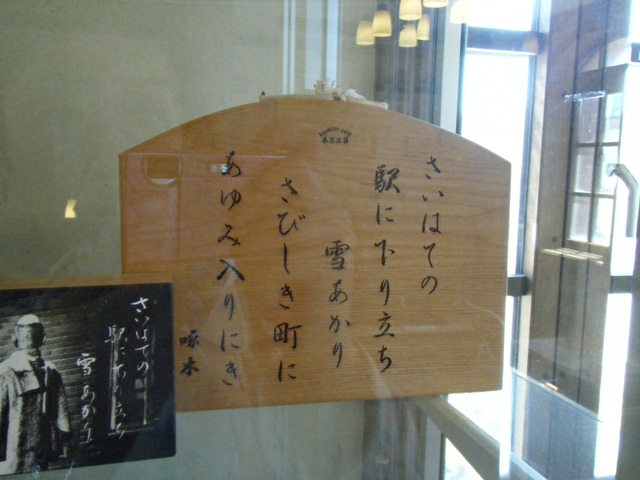 木工工芸
さいはての
駅に下り立ち
雪あかり
さびしき町に
あゆみ入りにき
啄木
さいはての
駅に下り立ち
雪あかり